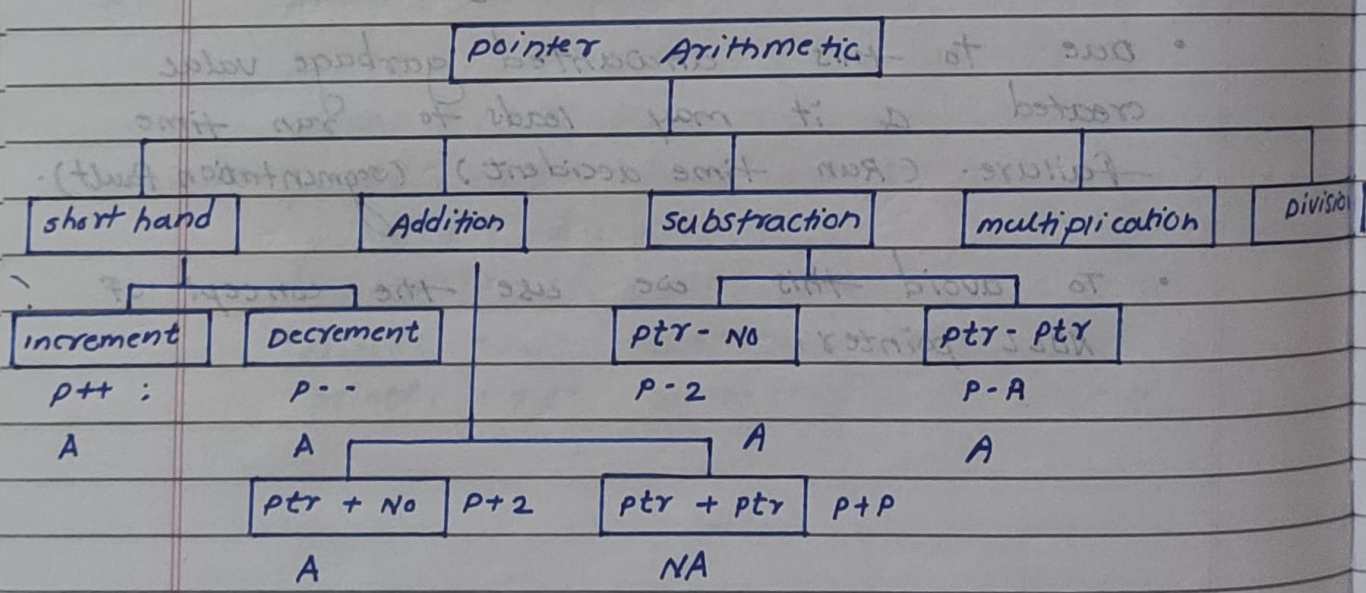 Pointer Arithmetic
short hand Addition substraction multiplication Divisio
increment Decrement Ptr - No Ptr - Ptr
P++ ; P-- P-2 P-A
A A A A
Ptr + No P+2 Ptr + Ptr P+P
A NA